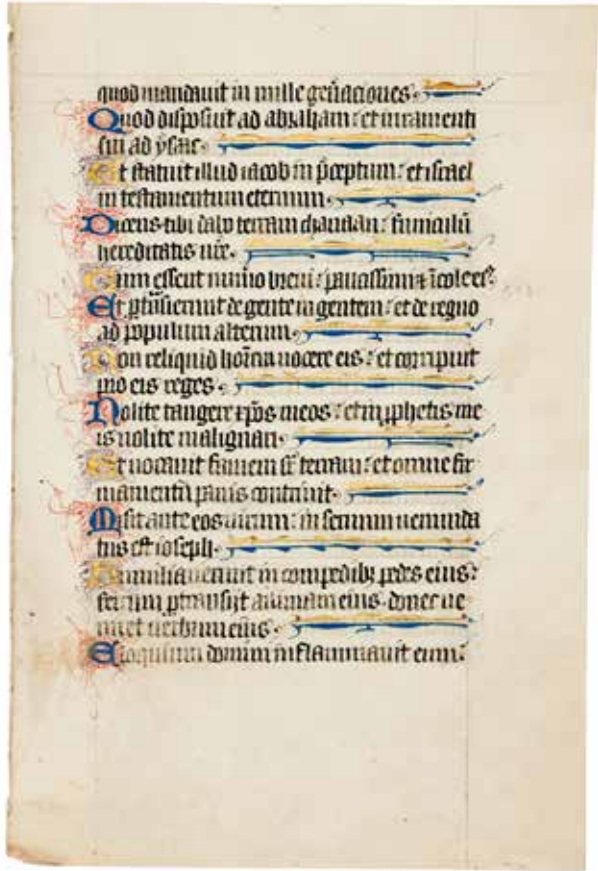 quod mandauit in mille gen̄aciones
Quod disposuit ad abraham: et iuramenti
sui ad ysaac
Et statuit illud iacob in p̄ceptum: et israel
in testamentum eternum
Dicens tibi dabo terram chanaan: funiculū
hereditatis vr̄e
Cum essent num̄o breui: paucissimi ⁊ īcole eꝰ:
Et ꝑtn̄sierunt de gente in gentem: et de regno
ad populum alterum
Non reliquid hoīem nocere eis: et corripuit
pro eis reges
Nolite tangere xp̄os meos: et in ꝓphetis me
is nolite malignari
Et uocauit famem sr̄ terram: et omne fir
mamentū panis contriuit
Misit ante eos uirum: in seruum uenunda
tus est ioseph
Humiliauerunt in compedibꝫ pedes eius:
ferrum ꝑtransijt animam eius donec ue
niret uerbum eius
Eloquium domini inflammauit eum: